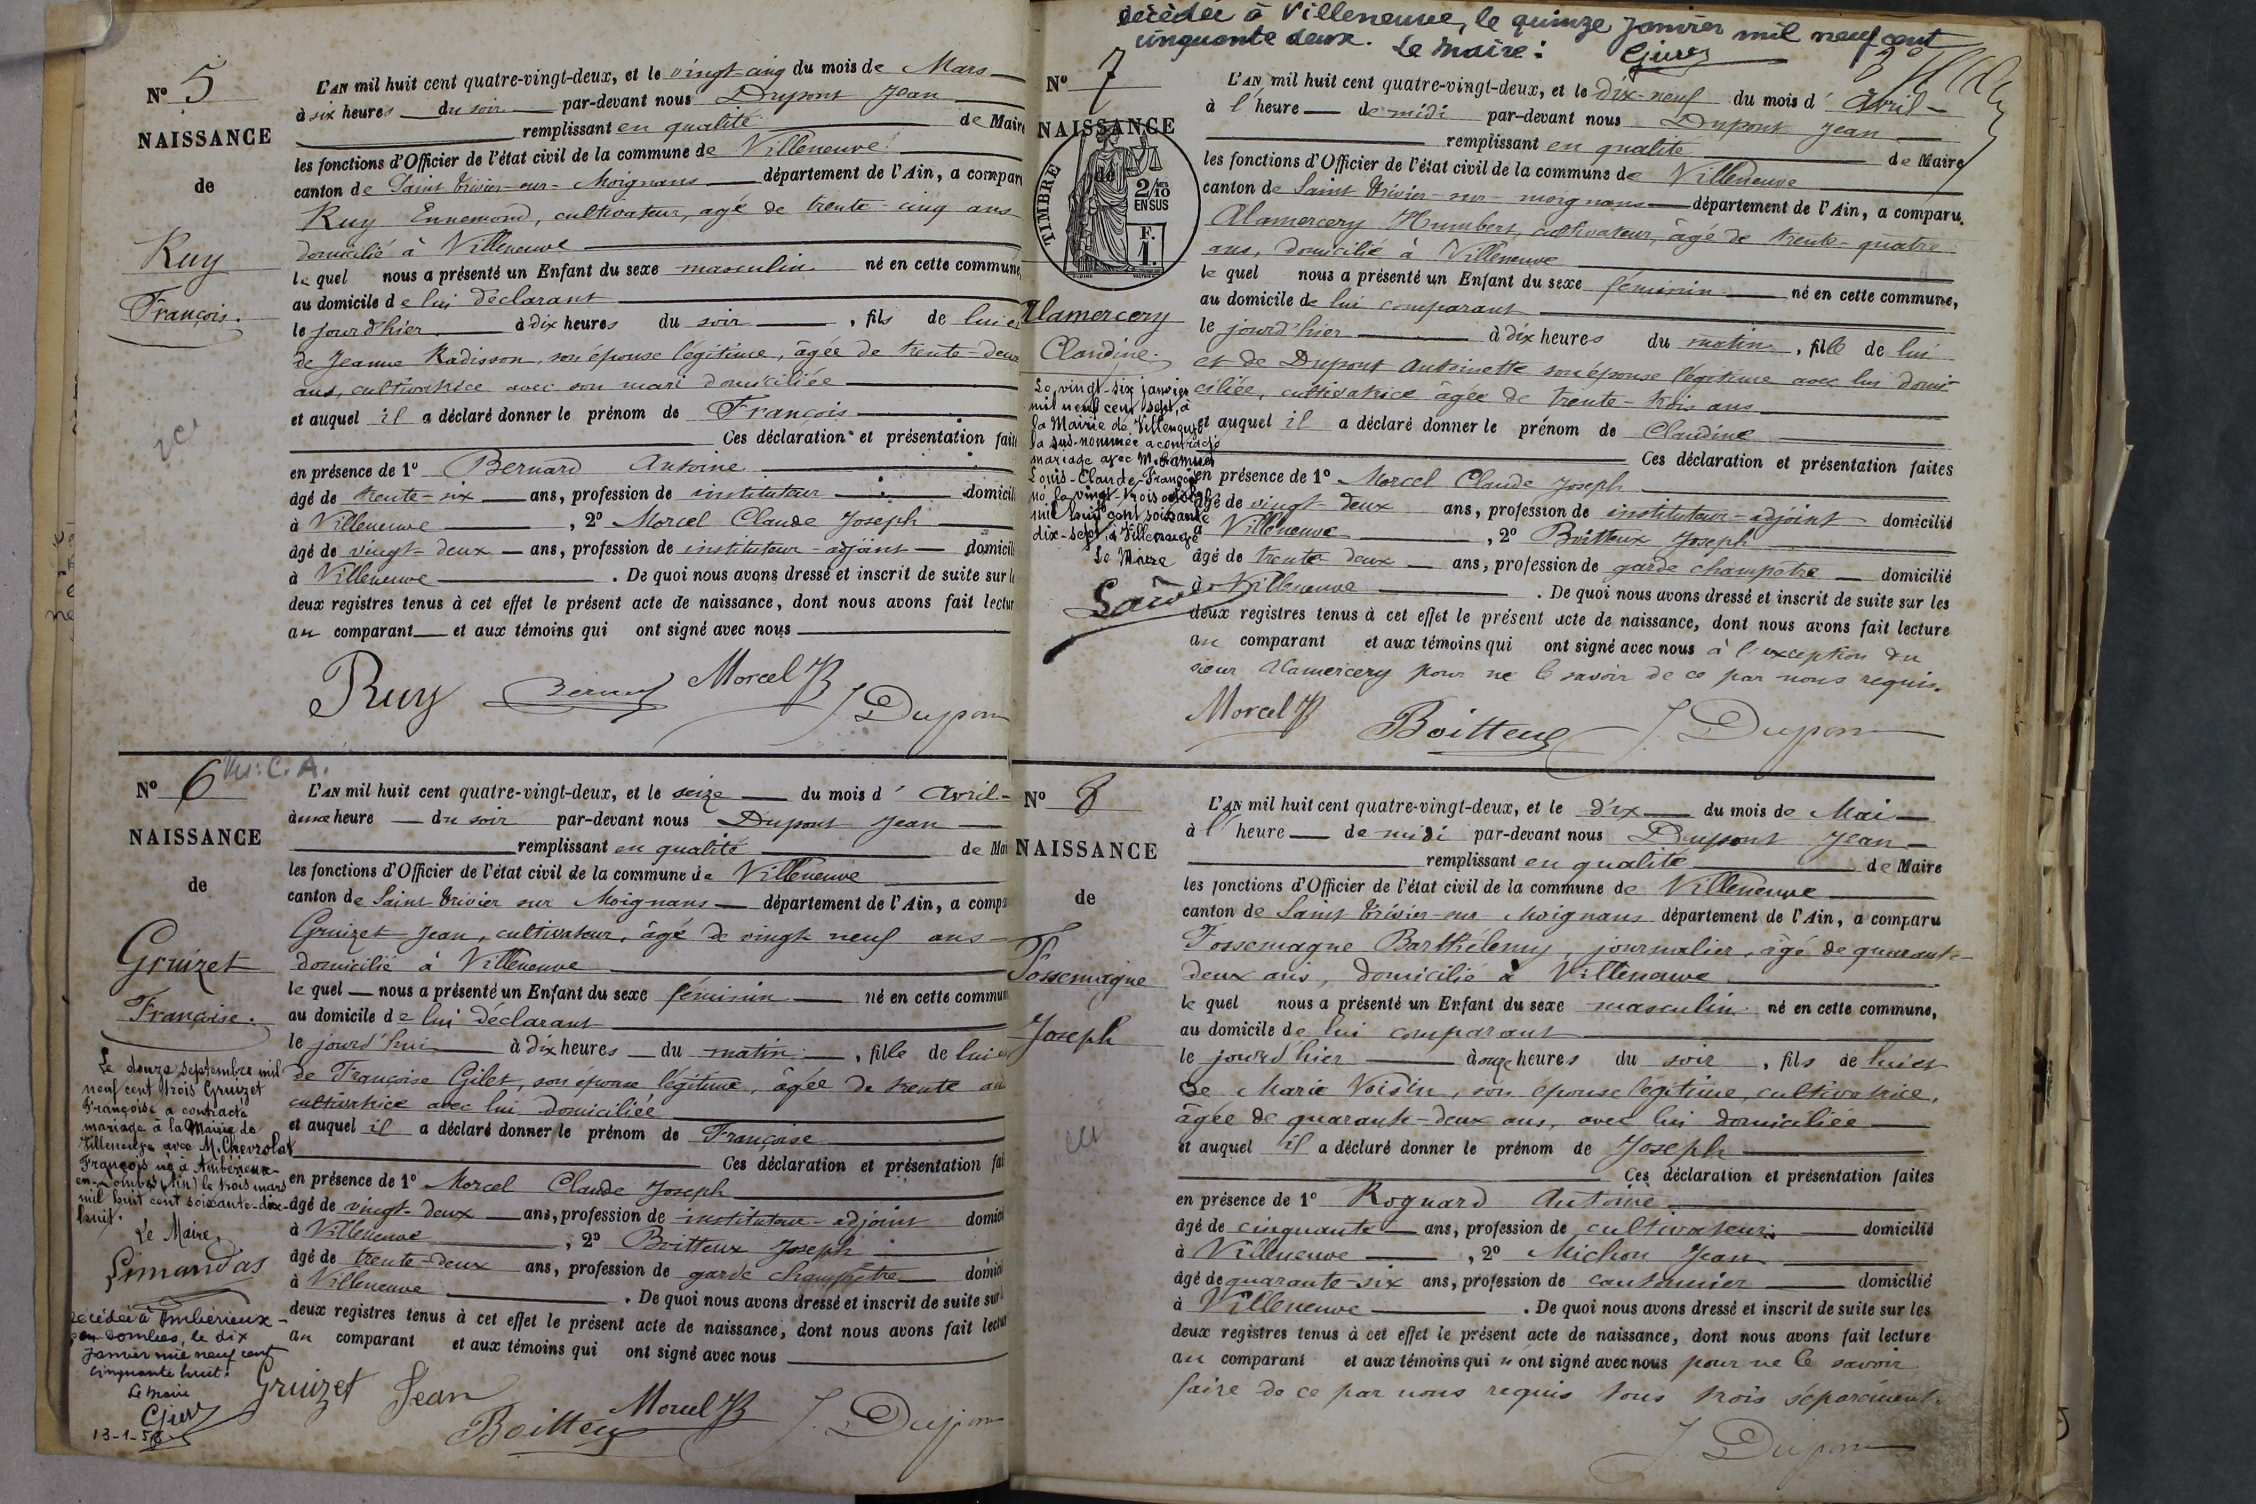 N° 5
NAISSANCE
de
Ruy
François.
L'AN mil huit cent quatre-vingt-deux, et le vingt-cinq du mois de Mars
à six heures du soir par-devant nous Dupont Jean
remplissant en qualité de Maire
les fonctions d'Officier de l'état civil de la commune de Villeneuve
canton de Saint Trivier-sur-Moignans département de l'Ain, a comparu
Ruy Ennemond, cultivateur, agé de trente-cinq ans
domicilié à Villeneuve
le quel nous a présenté un Enfant du sexe masculin né en cette commune,
au domicile de lui déclarant
le jourd'hier à dix heures du soir, fils de lui et
de Jeanne Radisson, son épouse légitime, âgée de trente-deux
ans, cultivatrice avec son mari domiciliée
et auquel il a déclaré donner le prénom de François
Ces déclaration et présentation faites
en présence de 1° Bernard Antoine
âgé de trente-six ans, profession de instituteur domicilié
à Villeneuve, 2° Morcel Claude Joseph
âgé de vingt-deux ans, profession de instituteur-adjoint domicilié
à Villeneuve. De quoi nous avons dressé et inscrit de suite sur les
deux registres tenus à cet effet le présent acte de naissance, dont nous avons fait lecture
au comparant et aux témoins qui ont signé avec nous
Ruy Bernard Morcel JB J. Dupont
N° 6
NAISSANCE
de
Gruizet
Françoise.
Le douze septembre mil
neuf cent trois Gruizet
Françoise a contracté
mariage à la Mairie de
Villeneuve avec M. Chevrolat
François né à Ambérieux-
en-Dombes (Ain) le trois mars
mil huit cent soixante-dix-
huit.
Le Maire,
Limandas
décédée à Ambérieux-
en Dombes, le dix
janvier mil neuf cent
cinquante huit.
Le Maire
13-1-58
L'AN mil huit cent quatre-vingt-deux, et le seize du mois d'Avril
à une heure du soir par-devant nous Dupont Jean
remplissant en qualité de Maire
les fonctions d'Officier de l'état civil de la commune de Villeneuve
canton de Saint Trivier sur Moignans département de l'Ain, a comparu
Gruizet Jean, cultivateur, âgé de vingt neuf ans
domicilié à Villeneuve
le quel nous a présenté un Enfant du sexe féminin né en cette commune
au domicile de lui déclarant
le jourd'hui à dix heures du matin, fille de lui et
de Françoise Gilet, son épouse légitime, âgée de trente ans
cultivatrice avec lui domiciliée
et auquel il a déclaré donner le prénom de Françoise
Ces déclaration et présentation faites
en présence de 1° Morcel Claude Joseph
âgé de vingt-deux ans, profession de instituteur-adjoint domicilié
à Villeneuve, 2° Boitteux Joseph
âgé de trente-deux ans, profession de garde champêtre domicilié
à Villeneuve. De quoi nous avons dressé et inscrit de suite sur les
deux registres tenus à cet effet le présent acte de naissance, dont nous avons fait lecture
au comparant et aux témoins qui ont signé avec nous
Gruizet Jean Boitteux Morcel JB J. Dupont
décédée à Villeneuve, le quinze janvier mil neuf cent
cinquante deux. Le Maire:
N° 7
NAISSANCE
de
TIMBRE
2/10
EN SUS
F.
1.
Alamercery
Claudine.
Le vingt-six janvier
mil neuf cent sept, à
la Mairie de Villeneuve
la sus-nommée a contracté
mariage avec M.
Louis-Claude-François
né le vingt-trois
mil huit cent soixante
dix-sept à Villeneuve
Le Maire
L'AN mil huit cent quatre-vingt-deux, et le dix-neuf du mois d'Avril
à l'heure de midi par-devant nous Dupont Jean
remplissant en qualité de Maire
les fonctions d'Officier de l'état civil de la commune de Villeneuve
canton de Saint Trivier-sur-moignans département de l'Ain, a comparu
Alamercery Humbert, cultivateur, âgé de trente-quatre
ans, domicilié à Villeneuve
le quel nous a présenté un Enfant du sexe féminin né en cette commune,
au domicile de lui comparant
le jourd'hier à dix heures du matin, fille de lui
et de Dupont Antoinette son épouse légitime avec lui domi-
ciliée, cultivatrice âgée de trente-trois ans
et auquel il a déclaré donner le prénom de Claudine
Ces déclaration et présentation faites
en présence de 1° Morcel Claude Joseph
âgé de vingt-deux ans, profession de instituteur-adjoint domicilié
à Villeneuve, 2° Boitteux Joseph
âgé de trente deux ans, profession de garde champêtre domicilié
à Villeneuve. De quoi nous avons dressé et inscrit de suite sur les
deux registres tenus à cet effet le présent acte de naissance, dont nous avons fait lecture
au comparant et aux témoins qui ont signé avec nous à l'exception du
sieur Alamercery pour ne le savoir de ce par nous requis.
Morcel JB Boitteux J. Dupont
N° 8
NAISSANCE
de
Fossemagne
Joseph
L'AN mil huit cent quatre-vingt-deux, et le dix du mois de Mai
à l'heure de midi par-devant nous Dupont Jean
remplissant en qualité de Maire
les fonctions d'Officier de l'état civil de la commune de Villeneuve
canton de Saint Trivier-sur-Moignans département de l'Ain, a comparu
Fossemagne Barthélemy, journalier, âgé de quarante-
deux ans, domicilié à Villeneuve
le quel nous a présenté un Enfant du sexe masculin né en cette commune,
au domicile de lui comparant
le jourd'hier à onze heures du soir, fils de lui et
de Marie Voisin, son épouse légitime, cultivatrice,
âgée de quarante-deux ans, avec lui domiciliée
et auquel il a déclaré donner le prénom de Joseph
Ces déclaration et présentation faites
en présence de 1° Rognard Antoine
âgé de cinquante ans, profession de cultivateur domicilié
à Villeneuve, 2° Michon Jean
âgé de quarante-six ans, profession de cantonnier domicilié
à Villeneuve. De quoi nous avons dressé et inscrit de suite sur les
deux registres tenus à cet effet le présent acte de naissance, dont nous avons fait lecture
au comparant et aux témoins qui n'ont signé avec nous pour ne le savoir
faire de ce par nous requis tous trois séparément.
J. Dupont